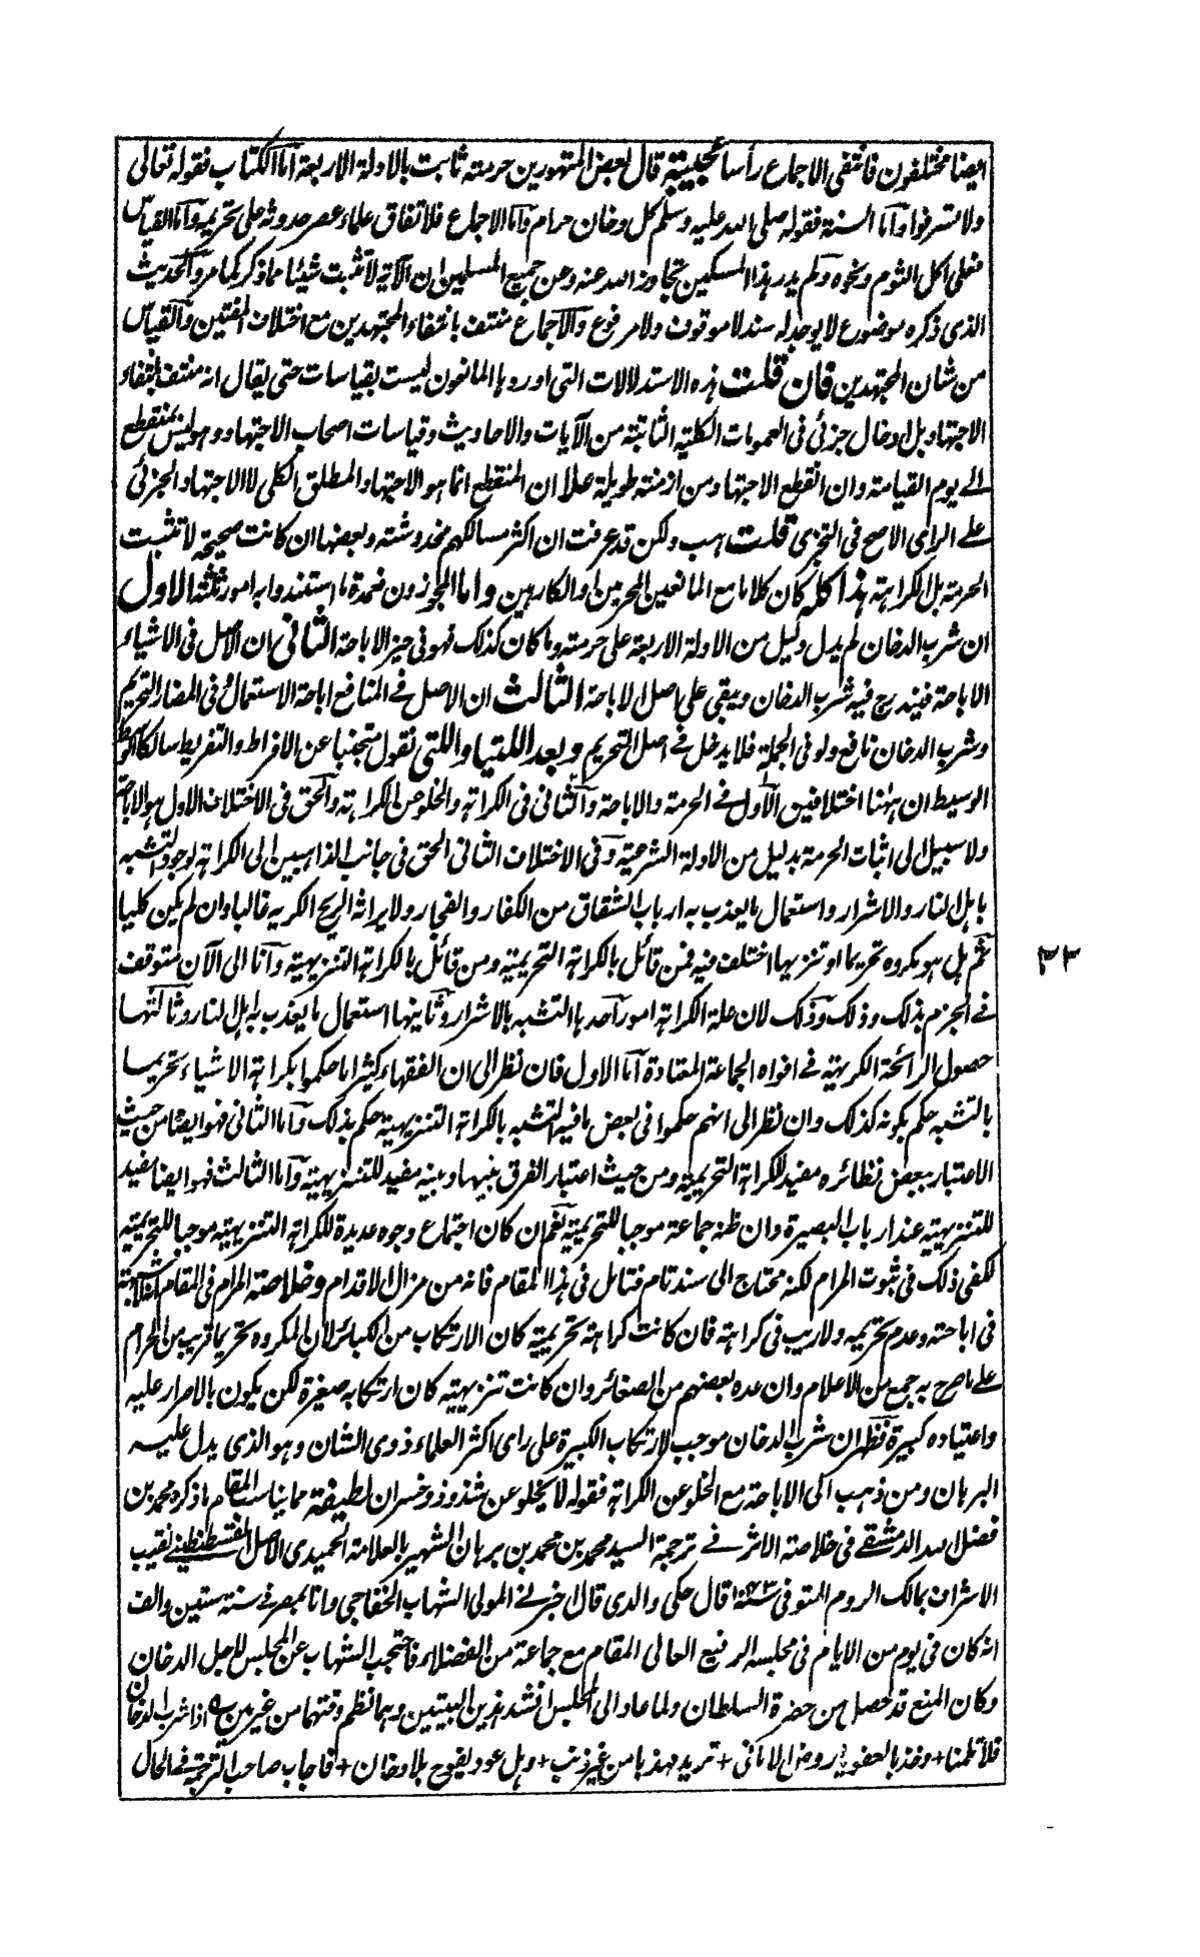 ايضا مختلفون فانتفى الاجماع رأسا عجيبة قال بعض المتهورين حرمته ثابت بالادلة الاربعة اما الكتاب فقوله تعالى
ولا تسرفوا واما السنة فقوله صلى الله عليه وسلم كل دخان حرام واما الاجماع فلاتفاق علماء عصر حدوثه على تحريمه واما القياس
فعلى اكل الثوم ونحوه ولم يدر هذا المسكين تجاوز الله عنه وعن جميع المسلمين ان الآية لا تثبت شيئا مما ذكر كما مر والحديث
الذى ذكره موضوع لا يوجد له سند لا موقوف ولا مرفوع والاجماع منتف بانتفاء المجتهدين مع اختلاف المفتين والقياس
من شان المجتهدين فان قلت هذه الاستدلالات التى اوردها المانعون ليست بقياسات حتى يقال انه منتف بانتفاء
الاجتهاد بل ادخال جزئى فى العمومات الكلية الثابتة من الآيات والاحاديث وقياسات اصحاب الاجتهاد وهو ليس بمنقطع
الى يوم القيامة وان انقطع الاجتهاد من ازمنة طويلة علا ان المنقطع انما هو الاجتهاد المطلق الكلى لا الاجتهاد الجزئى
على الراى الاصح فى التجزى قلت هب ولكن قد عرفت ان اكثر مسالكهم مخدوشة وبعضها ان كانت صحيحة لا تثبت
الحرمة بل الكراهة هذا كله كان كلاما مع المانعين المحرمين او الكارهين واما المجوزون فعمدة ما استندوا به امور ثلثة الاول
ان شرب الدخان لم يدل دليل من الادلة الاربعة على حرمته وما كان كذلك فهو فى حيز الاباحة الثانى ان الاصل فى الاشياء
الاباحة فيندرج فيه شرب الدخان ويبقى على اصل الاباحة الثالث ان الاصل فى المنافع اباحة الاستعمال وفى المضار التحريم
وشرب الدخان نافع ولو فى الجملة فلا يدخل فى اصل التحريم وبعد اللتيا واللتى نقول متجنبا عن الافراط والتفريط سالكا
الوسيط ان ههنا اختلافين الاول فى الحرمة والاباحة والثانى فى الكراهة والخلو عن الكراهة والحق فى الاختلاف الاول هو الاباحة
ولا سبيل الى اثبات الحرمة بدليل من الادلة الشرعية وفى الاختلاف الثانى الحق فى جانب الذاهبين الى الكراهة لوجود التشبه
باهل النار والاشرار واستعمال ما يعذب به ارباب الشقاق من الكفار والفجار ولايراثه الريح الكريه غالبا وان لم يكن كليا
ثم هل هو مكروه تحريما او تنزيها اختلف فيه فمن قائل بالكراهة التحريمية ومن قائل بالكراهة التنزيهية وانا الى الآن متوقف
فى الجزم بذلك وذلك وذلك لان علة الكراهة امور احدها التشبه بالاشرار وثانيها استعمال ما يعذب به اهل النار وثالثها
حصول الرائحة الكريهة فى افواه الجماعة المعتادة اما الاول فان نظر الى ان الفقهاء كثيرا ما حكموا بكراهة الاشياء تحريما
بالتشبه حكم بكونه كذلك وان نظر الى انهم حكموا فى بعض ما فيه التشبه بالكراهة التنزيهية حكم بذلك واما الثانى فهو ايضا من حيث
الاعتبار ببعض نظائره مفيد للكراهة التحريمية ومن حيث اعتبار الفرق بينها وبينه مفيد للتنزيهية واما الثالث فهو ايضا مفيد
للتنزيهية عند ارباب البصيرة وان ظنه جماعة موجبا للتحريمية نعم ان كان اجتماع وجوه عديدة للكراهة التنزيهية موجبا للتحريمية
لكفى ذلك فى ثبوت المرام لكنه محتاج الى سند تام فتامل فى هذا المقام فانه من مزال الاقدام وخلاصة المرام فى المقام انه لا شبهة
فى اباحته وعدم تحريمه ولا ريب فى كراهته فان كانت كراهته تحريمية كان الارتكاب من الكبائر لان المكروه تحريما قريب من الحرام
على ما صرح به جمع من الاعلام وان عده بعضهم من الصغائر وان كانت تنزيهية كان ارتكابه صغيرة لكن يكون بالاصرار عليه
واعتياده كبيرة فظهر ان شرب الدخان موجب لارتكاب الكبيرة على راى اكثر العلماء ذوى الشان وهو الذى يدل عليه
البرهان ومن ذهب الى الاباحة مع الخلو عن الكراهة فقوله لا يخلو عن شذوذ وخسران لطيفة مما يناسب المقام ما ذكره محمد بن
فضل الله الدمشقى فى خلاصة الاثر فى ترجمة السيد محمد بن محمد بن برهان الشهير بالعلامة الحميدى الاصل القسطنطينى نقيب
الاشراف بممالك الروم المتوفى سنة ١٠٤٣ قال حكى والدى قال اخبرنى المولى الشهاب الخفاجى وانا بمصر فى سنة ستين والف
انه كان فى يوم من الايام فى مجلسه الرفيع العالى المقام مع جماعة من الفضلاء فاحتجب الشهاب عن المجلس لاجل الدخان
وكان المنع قد حصل من حضرة السلطان ولما عاد الى المجلس انشد هذين البيتين وهما نظم وقتهما من غير مين اذا شرب الدخان
فلا تلمنا + وخذ بالعفو يا روض الامانى + تريد مهذبا من غير ذنب + وهل عود يفوح بلا دخان + فاجاب صاحب الترجمة فى الحال
٣٣